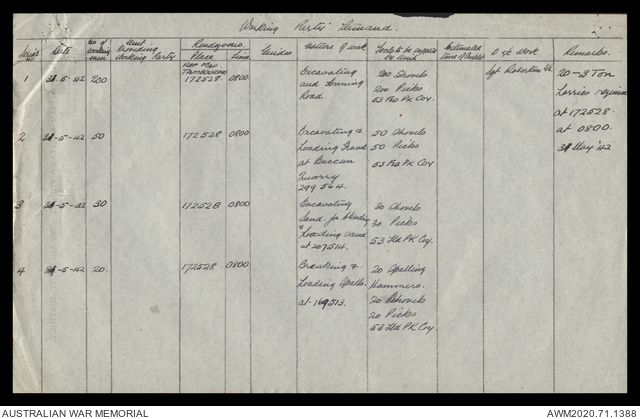 Working Party Demand.
Serial No
Date
No of Working men
Unit Providing Working Party
Rendezvous.
Place
Time
Guides
Nature of work
Tools to be
by Unit
Estimated
O i/c Work
Remarks.
REF MAP
TAMBOURINE
1 31-5-42 200 172528 0800 Excavating 200 Shovels Sgt Robertson 20-3 Ton
and forming 200 Picks Lorries required
Road. 53 Fld PK Coy. at 172528
at 0800.
31 May '42
2 31-5-42 50 172528 0800 Excavating & 50 Shovels
Loading Gravel 50 Picks
at Buccan 53 Fld PK Coy
Quarry
299564.
3 31-5-42 30 172528 0800 Excavating 30 Shovels
Sand for blinding 30 Picks
& Loading sand 53 Fld PK Coy.
at 207514.
4 31-5-42 20. 172528 0800 Breaking & 20 Spalling
Loading Spalls. Hammers.
at 169513. 20 Shovels
20 Picks
53 Fld PK Coy.
AUSTRALIAN WAR MEMORIAL
AWM2020.71.1388